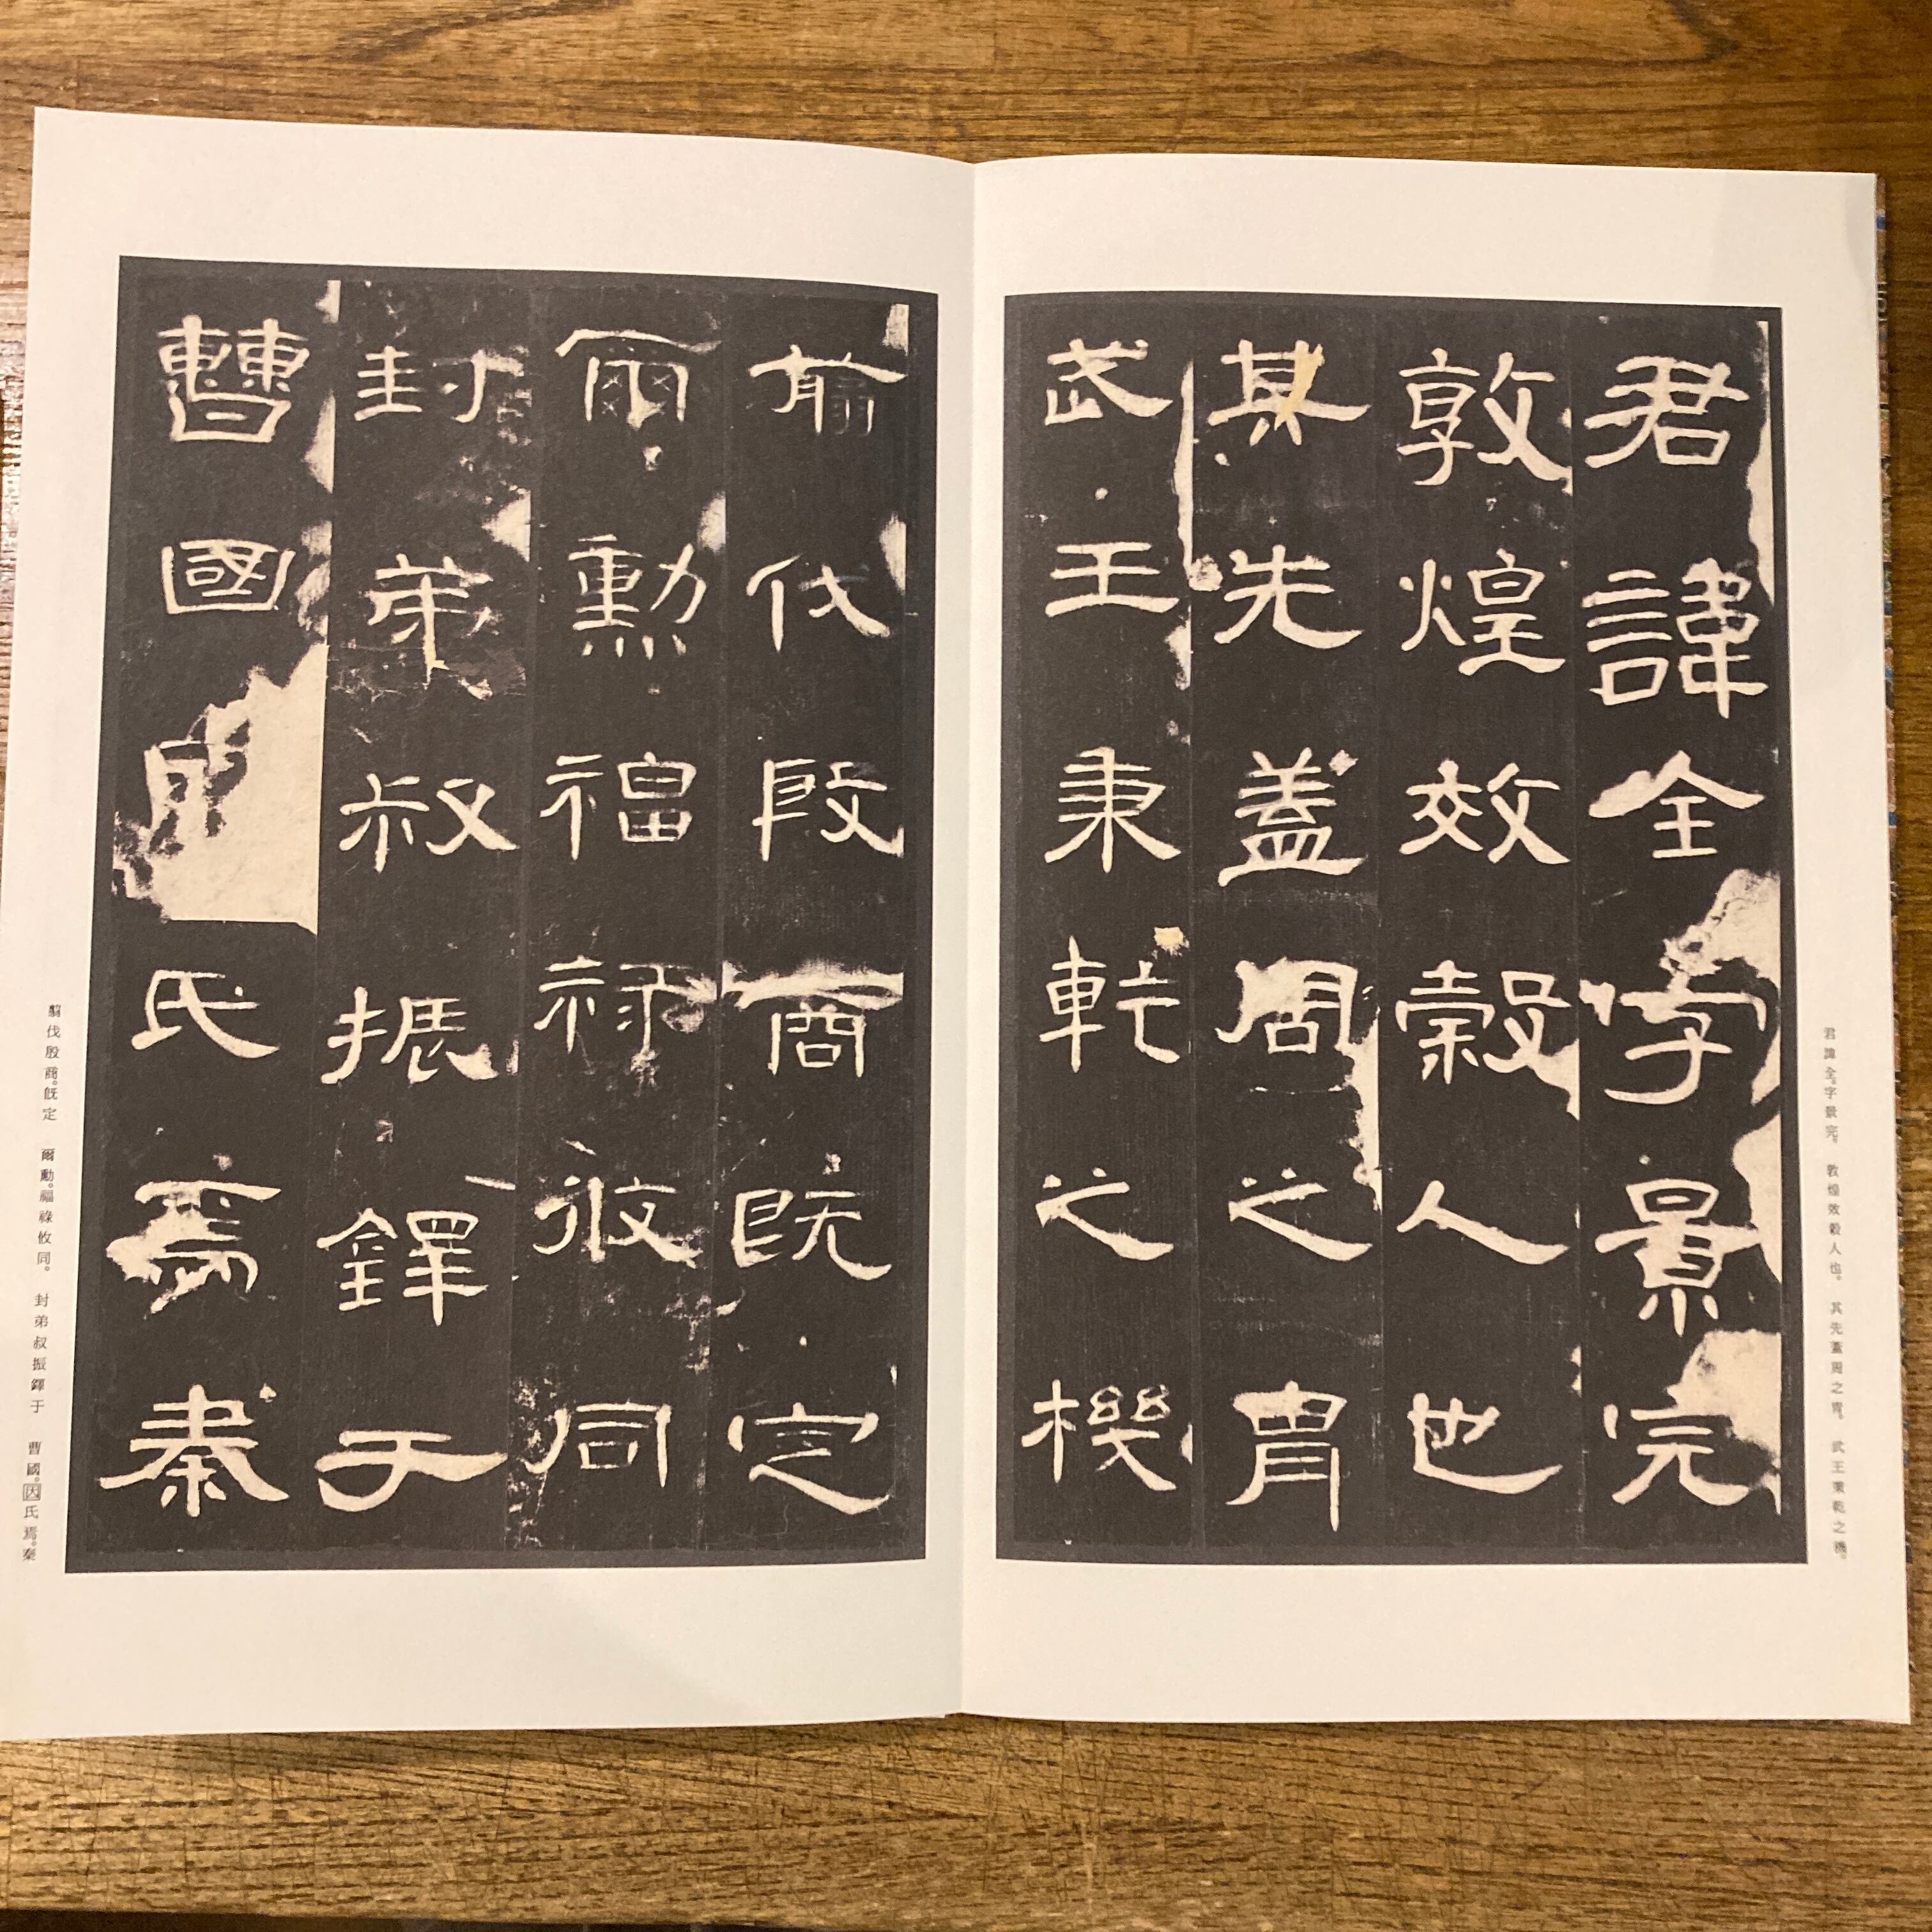 君諱全字景完
敦煌效穀人也
其先蓋周之胄
武王秉乾之機
翦伐殷商既定
爾勳福祿攸同
封弟叔振鐸于
曹國因氏焉秦
君諱全。字景完。 敦煌效穀人也。 其先蓋周之胄。 武王秉乾之機。
翦伐殷商。既定 爾勳。福祿攸同。 封弟叔振鐸于 曹國。因氏焉。秦